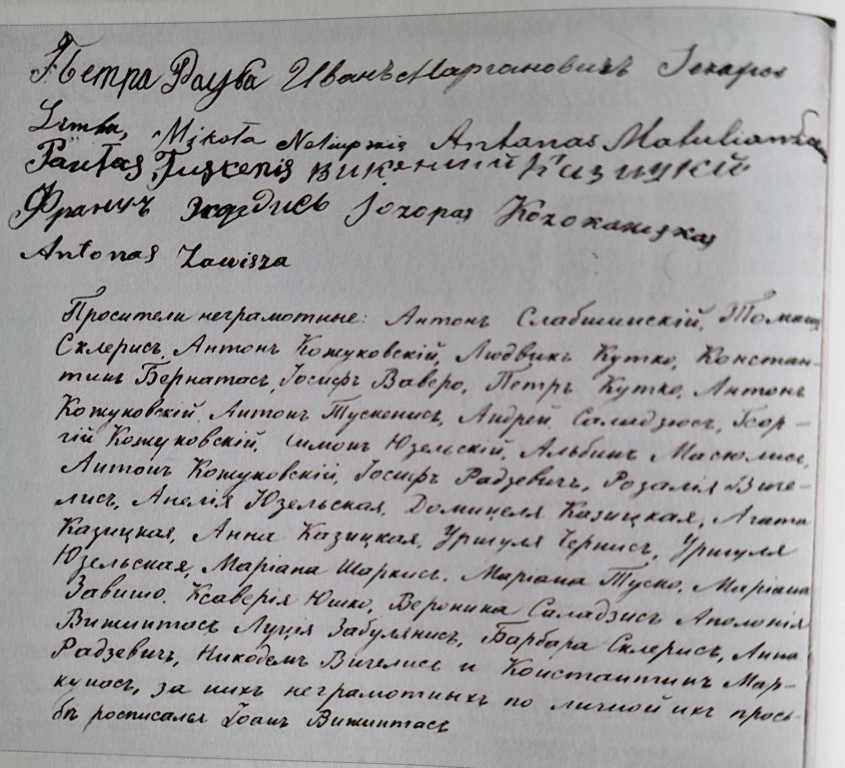 Петра Рауба Иванъ Маргановичъ
Zemba, Mikola Antanas Matulianza
Pautas Tuskenis викентий Казицкий
Францъ Jozopas Kozokaneckas
Antonas Zawisza
Просители неграмотные: Антонъ Слабшинскій, Томашъ
Склерисъ, Антонъ Кожуковскій, Людвикъ Кутко, Констан-
тинъ Бернатась, Іосифъ Ваверо, Петръ Кутко, Антонъ
Кожуковскій, Антонъ Тускенисъ, Андрей Саладзюсъ, Геор-
гій Кожуковскій, Симонъ Юзельскій, Альбинъ Масюлисъ,
Антонъ Кожуковскій, Іосифъ Радзевичъ, Розалія Виче-
лисъ, Анелія Юзельская, Домицеля Казицкая, Агата
Казицкая, Анна Казицкая, Уршуля Чернисъ, Уршуля
Юзельская, Маріана Шаркисъ, Маріана Туско, Маріана
Завишо, Ксаверія Юшко, Вероника Саладзисъ Аполонія
Вишинтасъ Луція Забулянисъ, Барбара Склерисъ, Анна
Радзевичъ, Никодемъ Вичелисъ и Константинъ Мар-
куносъ, за нихъ неграмотныхъ по личной ихъ прось-
бѣ росписался Іоанъ Вишинтасъ